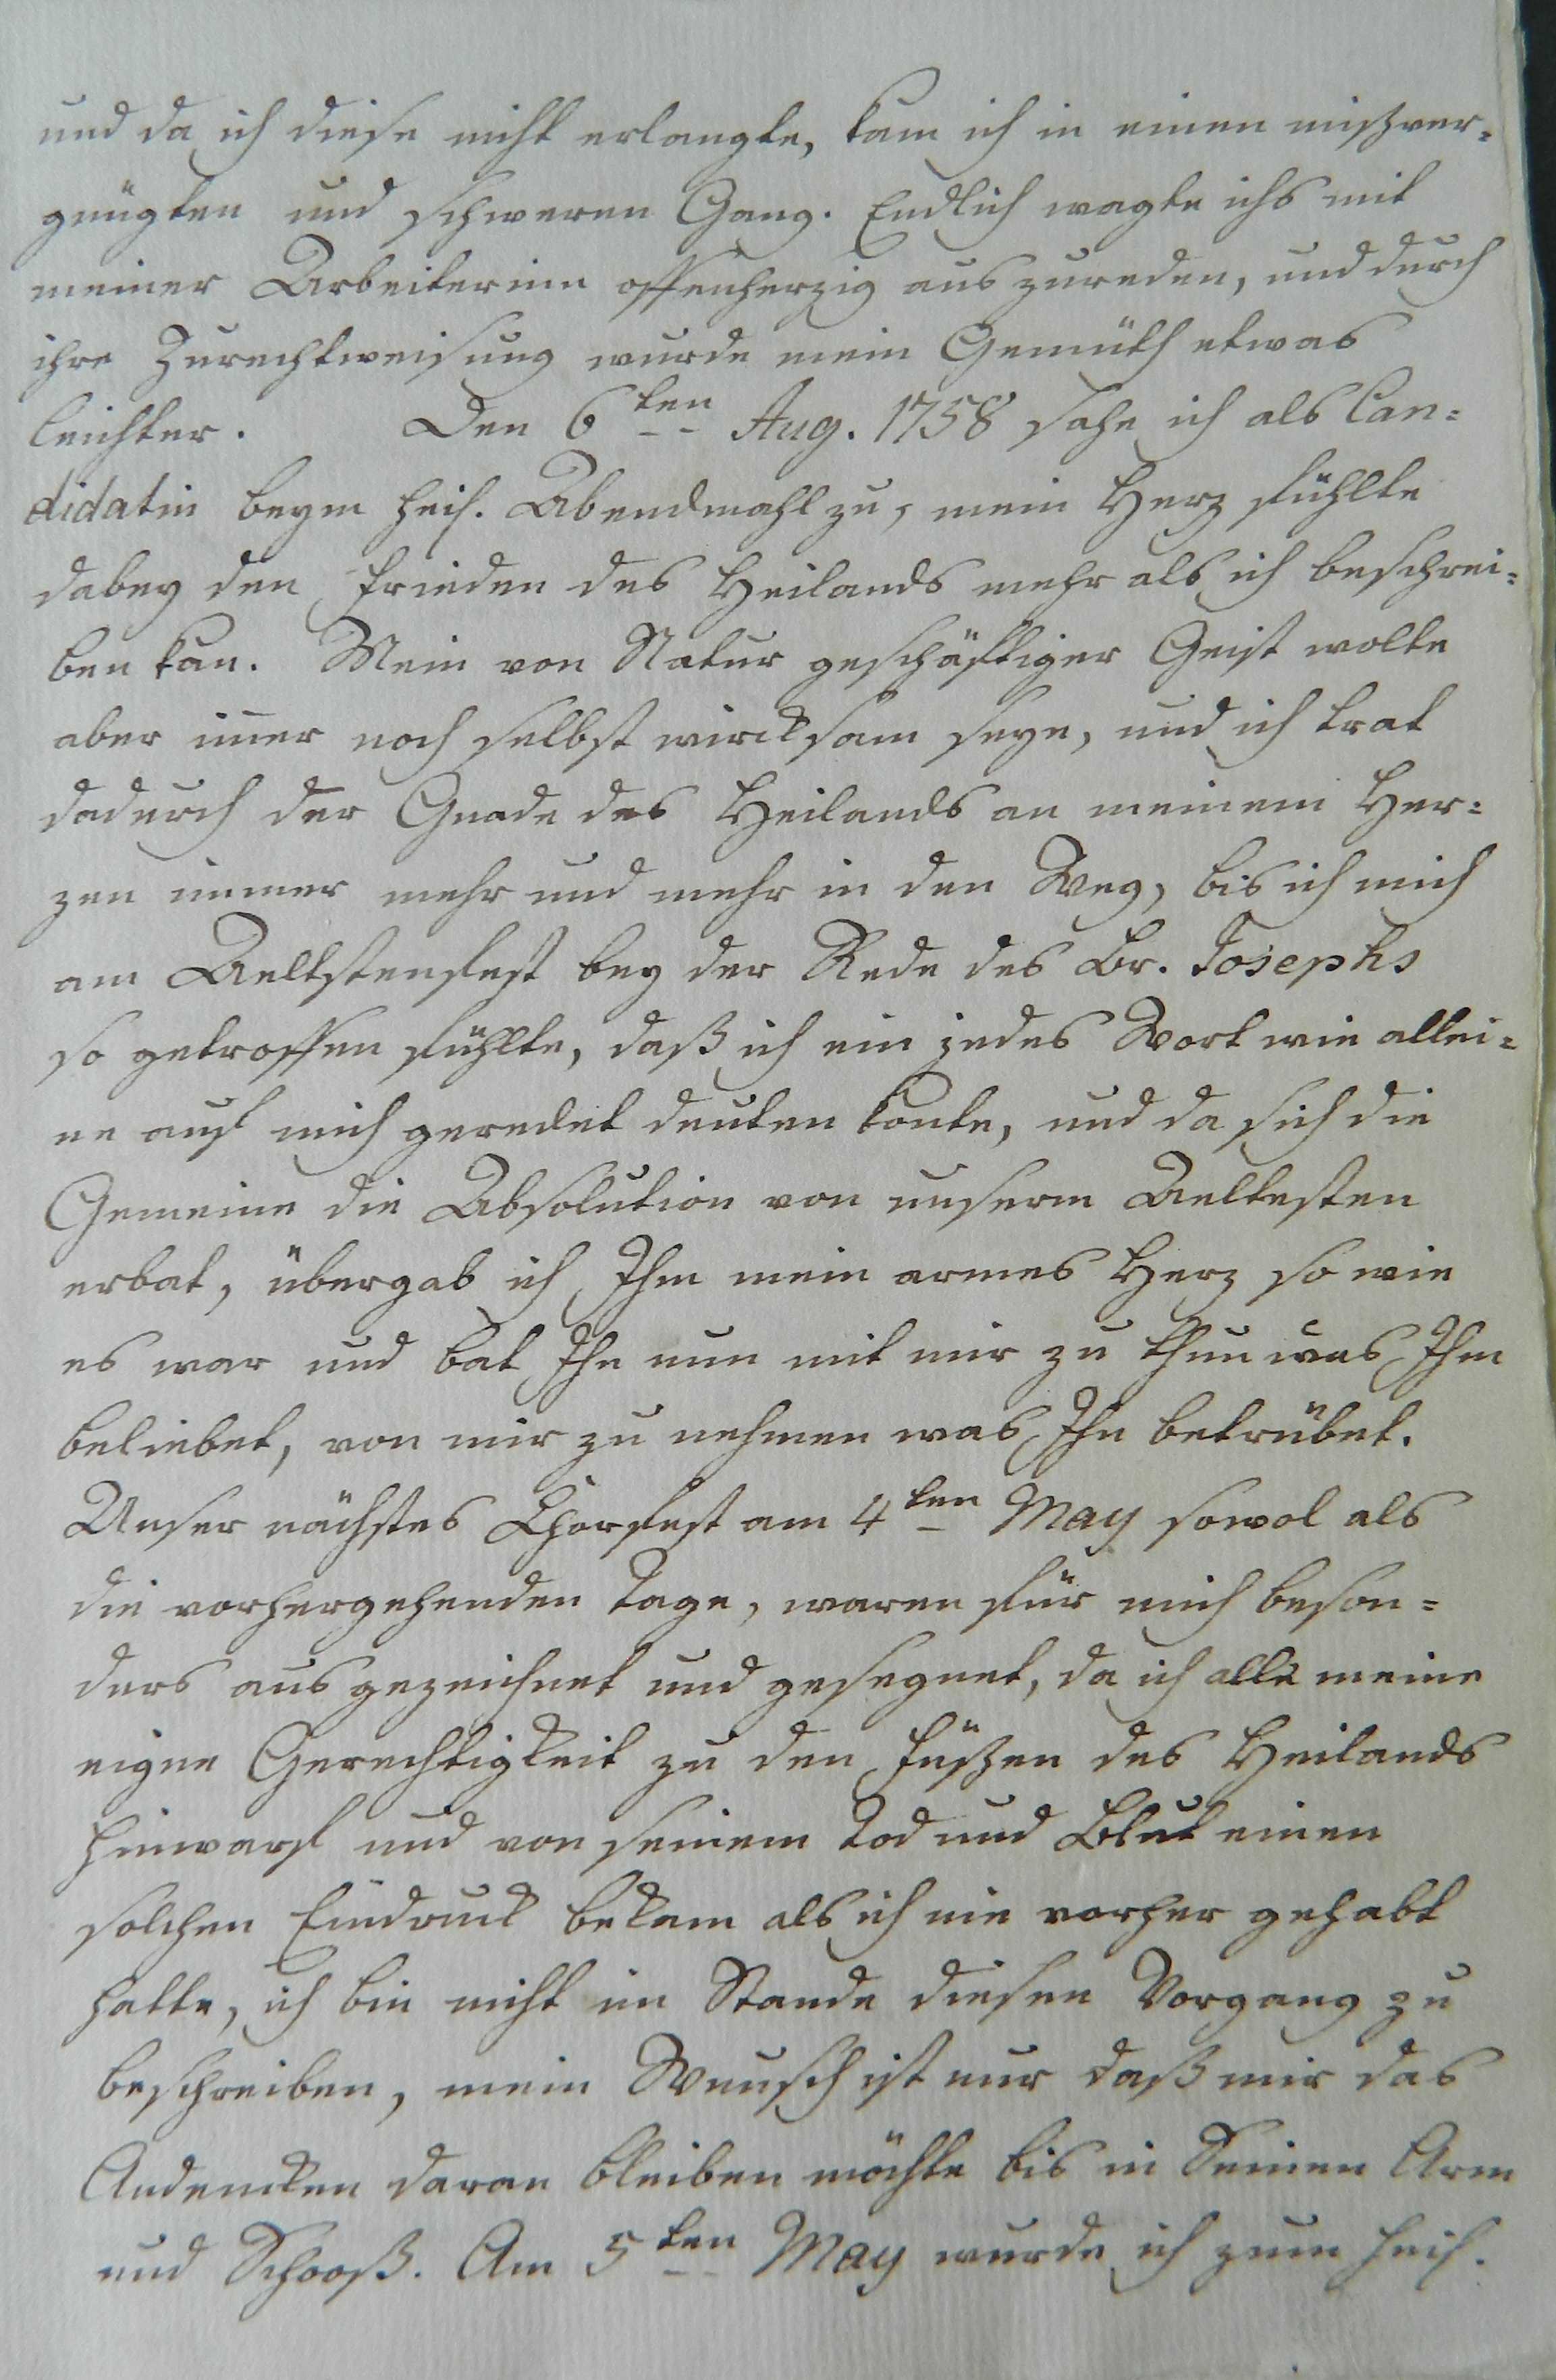 und da ich diese nicht erlangte, kam ich in einen mißver-
gnügten und schweren Gang. Endlich wagte ichs mit
meiner Arbeiterinn offenherzig auszureden, und durch
ihre Zurechtweisung wurde mein Gemüth etwas
leichter. Den 6ten Aug. 1758 sahe ich als Can-
didatin beym heil. Abendmahl zu, mein Herz fühlte
dabey den Frieden des Heilands mehr als ich beschrei-
ben kan. Mein von Natur geschäftiger Geist wolte
aber im̄er noch selbst wircksam seyn, und ich trat
dadurch der Gnade des Heilands an meinem Her-
zen immer mehr und mehr in den Weg, bis ich mich
am Aeltstenfest bey der Rede des Br. Josephs
so getroffen fühlte, daß ich ein jedes Wort wie allei-
ne auf mich geredet deuten konte, und da sich die
Gemeine die Absolution von unserm Aeltesten
erbat, übergab ich Ihm mein armes Herz so wie
es war und bat Ihn nun mit mir zu thun was Ihm
beliebet, von mir zu nehmen was Ihn betrübet.
Unser nächstes Chorfest am 4ten May sowol als
die vorhergehenden Tage, waren für mich beson-
ders ausgezeichnet und gesegnet, da ich alle meine
eigne Gerechtigkeit zu den Füßen des Heilands
hinwarf und von seinem Tod und Blut einen
solchen Eindruck bekam als ich nie vorher gehabt
hatte, ich bin nicht im Stande diesen Vorgang zu
beschreiben, mein Wunsch ist nur daß mir das
Andencken daran bleiben möchte bis in Seinen Arm
und Schooß. Am 5ten May wurde ich zum heil.